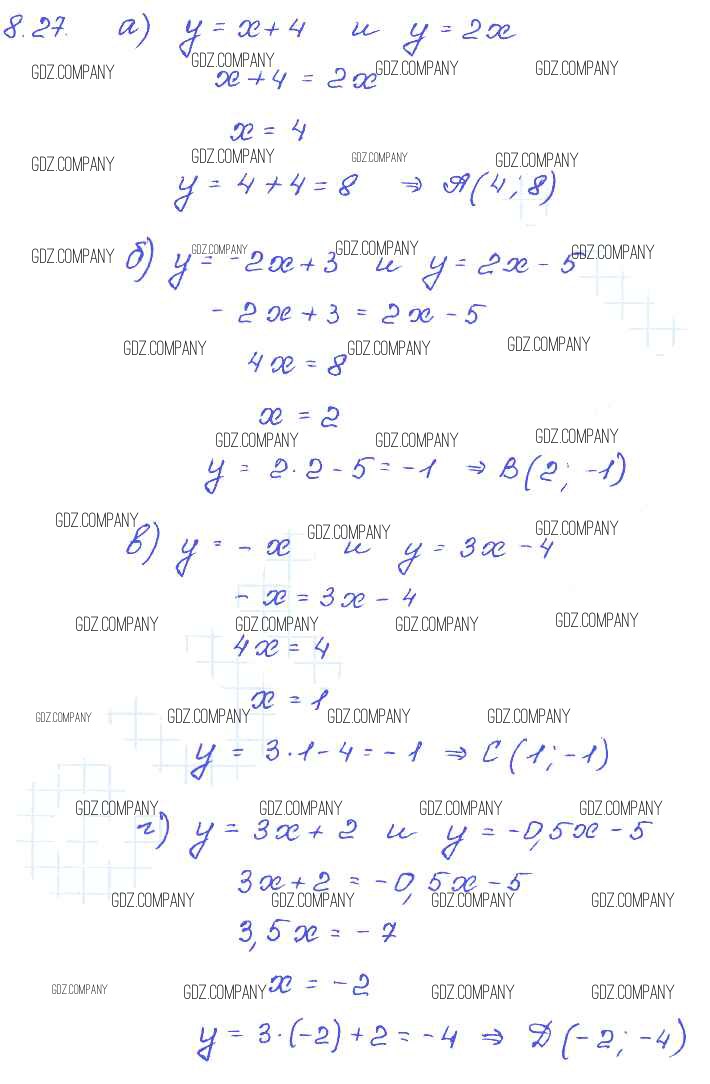 8.27. а) y = x + 4 и y = 2x
GDZ.COMPANY GDZ.COMPANY GDZ.COMPANY GDZ.COMPANY
x + 4 = 2x
x = 4
GDZ.COMPANY GDZ.COMPANY GDZ.COMPANY GDZ.COMPANY
y = 4 + 4 = 8 ⇒ A(4; 8)
GDZ.COMPANY GDZ.COMPANY GDZ.COMPANY GDZ.COMPANY
б) y = -2x + 3 и y = 2x - 5
- 2x + 3 = 2x - 5
GDZ.COMPANY GDZ.COMPANY GDZ.COMPANY
4x = 8
x = 2
GDZ.COMPANY GDZ.COMPANY GDZ.COMPANY
y = 2·2 - 5 = -1 ⇒ B(2; -1)
GDZ.COMPANY GDZ.COMPANY GDZ.COMPANY
в) y = - x и y = 3x - 4
- x = 3x - 4
GDZ.COMPANY GDZ.COMPANY GDZ.COMPANY GDZ.COMPANY
4x = 4
x = 1
GDZ.COMPANY GDZ.COMPANY GDZ.COMPANY GDZ.COMPANY
y = 3·1 - 4 = - 1 ⇒ C(1; -1)
GDZ.COMPANY GDZ.COMPANY GDZ.COMPANY GDZ.COMPANY
г) y = 3x + 2 и y = -0,5x - 5
3x + 2 = -0,5x - 5
GDZ.COMPANY GDZ.COMPANY GDZ.COMPANY GDZ.COMPANY
3,5x = - 7
x = -2
GDZ.COMPANY GDZ.COMPANY GDZ.COMPANY GDZ.COMPANY
y = 3·(-2) + 2 = -4 ⇒ Д(-2; -4)